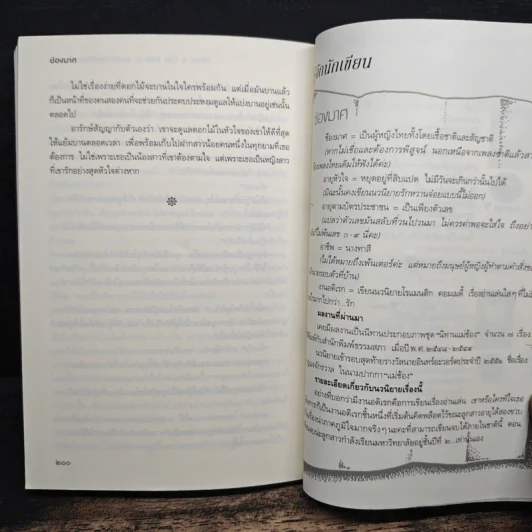 ช่องมาศ
ไม่ใช่เรื่องง่ายที่ดอกไม้จะบานในใจใครพร้อมกัน แต่เมื่อมันบานแล้ว
ก็เป็นหน้าที่ของคนสองคนที่จะช่วยกันประคบประหงมดูแลให้แบ่งบานอยู่เช่นนั้น
ตลอดไป
อารักษ์สัญญากับตัวเองว่า เขาจะดูแลดอกไม้ในหัวใจของเขาให้ดีที่สุด
ให้แย้มบานตลอดเวลา เพื่อพร้อมเก็บไปฝากสาวน้อยคนหนึ่งในทุกยามที่เธอ
ต้องการ ไม่ใช่เพราะเธอเป็นน้องสาวที่เขาต้องตามใจ แต่เพราะเธอเป็นหญิงสาว
ที่เขารักอย่างสุดหัวใจต่างหาก
๒๐๐
จักนักเขียน
ช่องมาศ
ช่องมาศ = เป็นผู้หญิงไทยทั้งโดยเชื้อชาติและสัญชาติ
(หากไม่เชื่อและต้องการพิสูจน์ นอกเหนือจากเพลงชาติแล้ว
เพลงไทยเดิมให้ฟังได้ค่ะ)
อายุหัวใจ = หยุดอยู่ที่สิบแปด ไม่มีวันจะเกินกว่านั้นไปได้
(มิฉะนั้นคงเขียนนวนิยายรักหวานจ๋อยแบบนี้ไม่ออก)
อายุตามบัตรประชาชน = เป็นเพียงตัวเลข
(แปลว่าตัวเลขมันสลับที่วนไปวนมา ไม่ควรค่าพอจะใส่ใจ ถึงอย่า
ไม่พ้นเลข ๐-๙ นี่ค่ะ)
อาชีพ = นางทาสี
(ไม่ได้หมายถึงเพ้นเตอร์ค่ะ แต่หมายถึงมนุษย์ผู้หญิงผู้ทำตามคำสั่ง
รอบตัวที่บ้าน)
งานอดิเรก = เขียนนวนิยายโรแมนติก คอมเมดี้ เรื่องอ่านเล่นใสๆ ที่ไม่
มากไปกว่า...รัก
ผลงานที่ผ่านมา
เคยมีผลงานเป็นนิทานประกอบภาพชุด "นิทานแม่ช้อง" จำนวน ๗ เรื่อง
พิมพ์กับสำนักพิมพ์ธรรมสภา เมื่อปี พ.ศ. ๒๕๔๔-๒๕๔๕
นวนิยายเข้ารอบสุดท้ายรางวัลนายอินทร์อะวอร์ดประจำปี ๒๕๕๑ ชื่อเรื่อง
ในนามปากกา "แม่ช้อง"
รายละเอียดเกี่ยวกับนวนิยายเรื่องนี้
อย่างที่บอกว่ามีงานอดิเรกคือการเขียนเรื่องอ่านเล่น เขาหรือใครที่ใจเธอ
ก็เป็นงานอดิเรกชิ้นหนึ่งที่เริ่มต้นคิดพล็อตไว้ขณะลูกสาวอายุได้สองขวบ
ภาคภูมิใจมากจริงๆ นะคะที่สามารถเขียนจบได้ภายในชาตินี้ ตอน
ขณะลูกสาวกำลังเรียนมหาวิทยาลัยอยู่ชั้นปีที่ ๒...เท่านั้นเอง